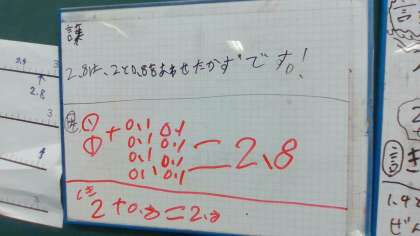 言葉
2.8は、2と0.8をあわせたかずです。!
図
① + 0.1 0.1
① 0.1 0.1
0.1 0.1
0.1 0.1 = 2.8
しき
2+0.8=2.8
2.8
3
3
3
き